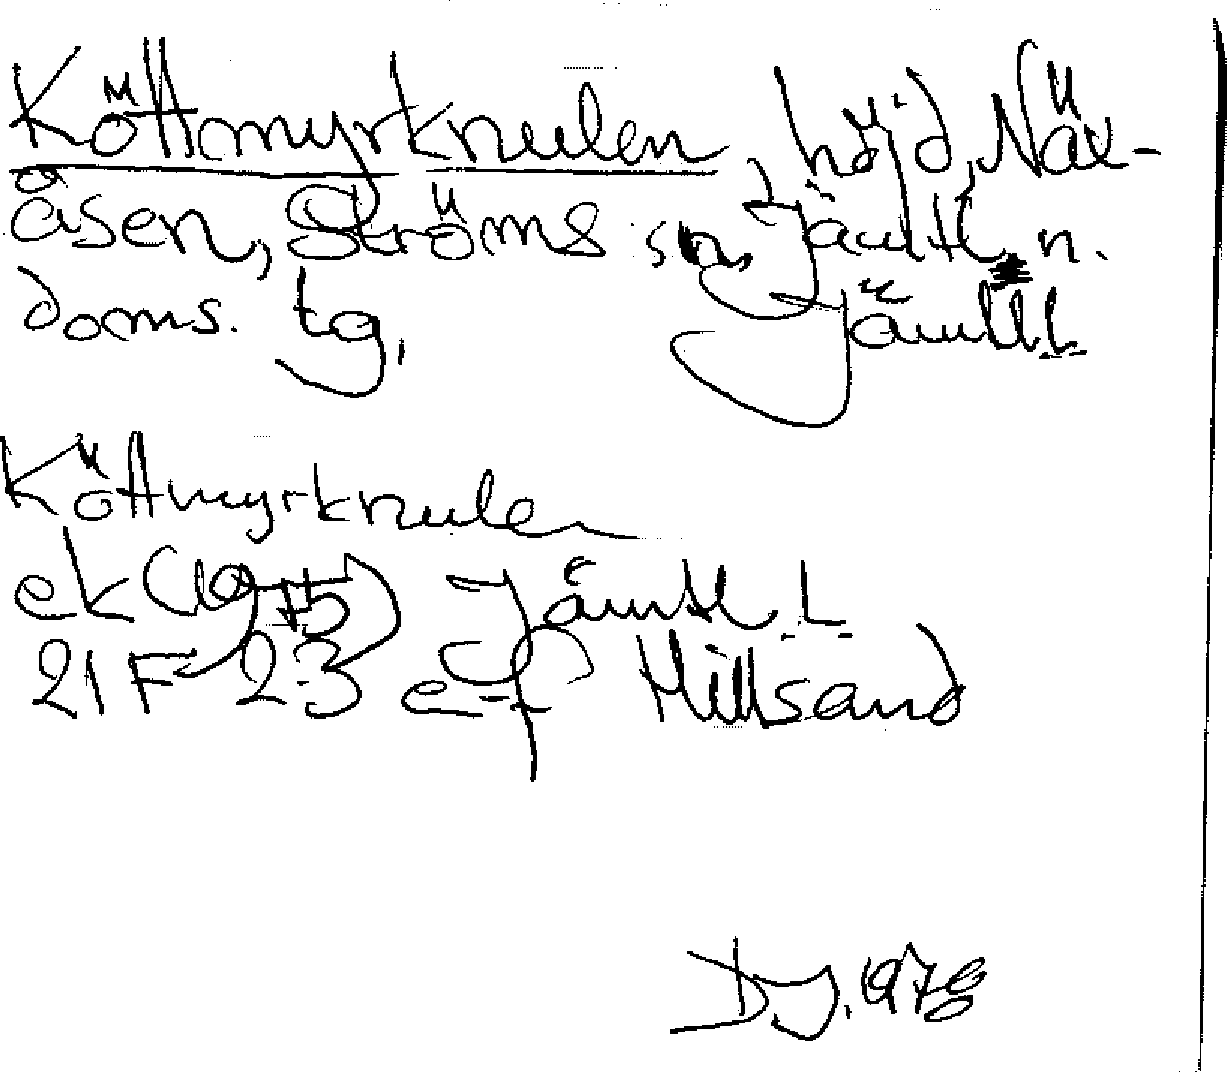 Köttmyrknulen, höjd, Näx-
åsen, Ströms sn, Jämtl. n.
doms. tg, Jämtl.l.
Köttmyrknulen
ek (1975) Jämtl. L.
21F 2-3 e-f Hillsand
DJ. 1978